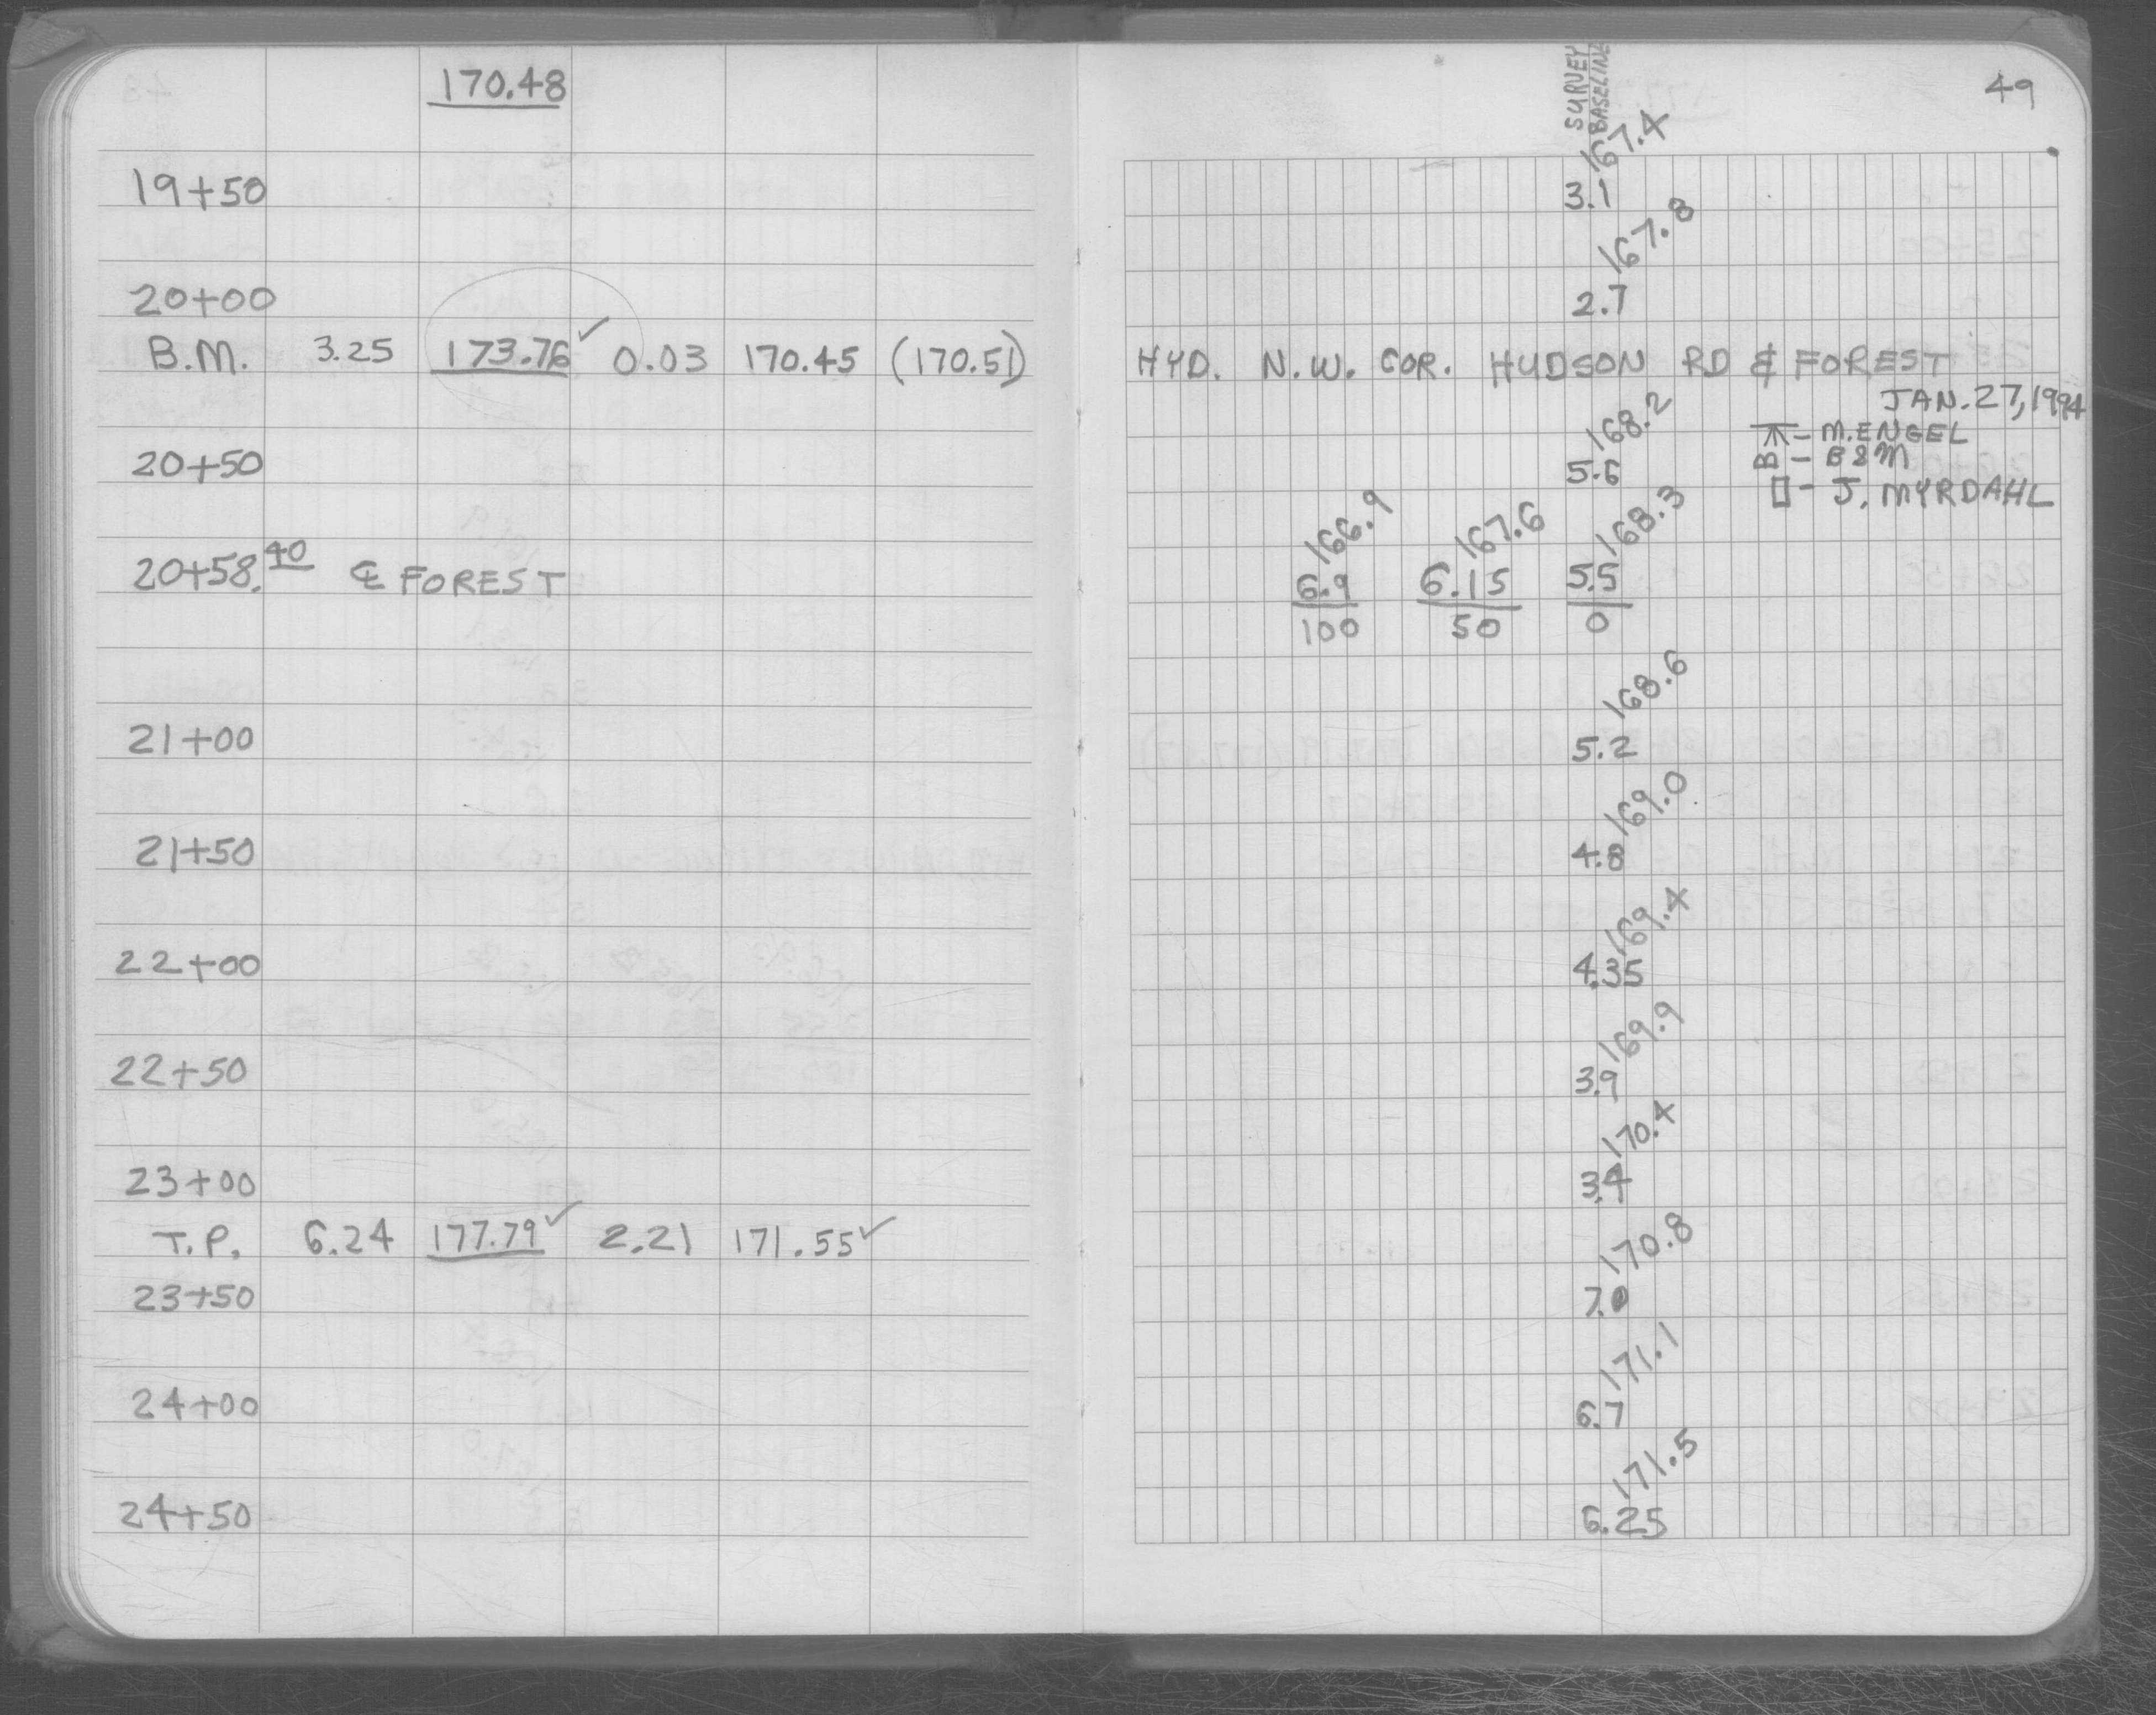 170.48
19+50
20+00
B.M. 3.25 173.76✓ 0.03 170.45 (170.51)
20+50
20+58.40 ℄ FOREST
21+00
21+50
22+00
22+50
23+00
T.P. 6.24 177.79✓ 2.21 171.55✓
23+50
24+00
24+50
49
SURVEY
BASELINE
167.4
3.1
167.8
2.7
HYD. N.W. COR. HUDSON RD & FOREST
JAN. 27, 1994
168.2
5.6
⊼ - M. ENGEL
B - B&M
▯ - J. MYRDAHL
166.9 167.6 168.3
6.9 6.15 5.5
100 50 0
168.6
5.2
169.0
4.8
169.4
4.35
169.9
3.9
170.4
3.4
170.8
7.0
171.1
6.7
171.5
6.25